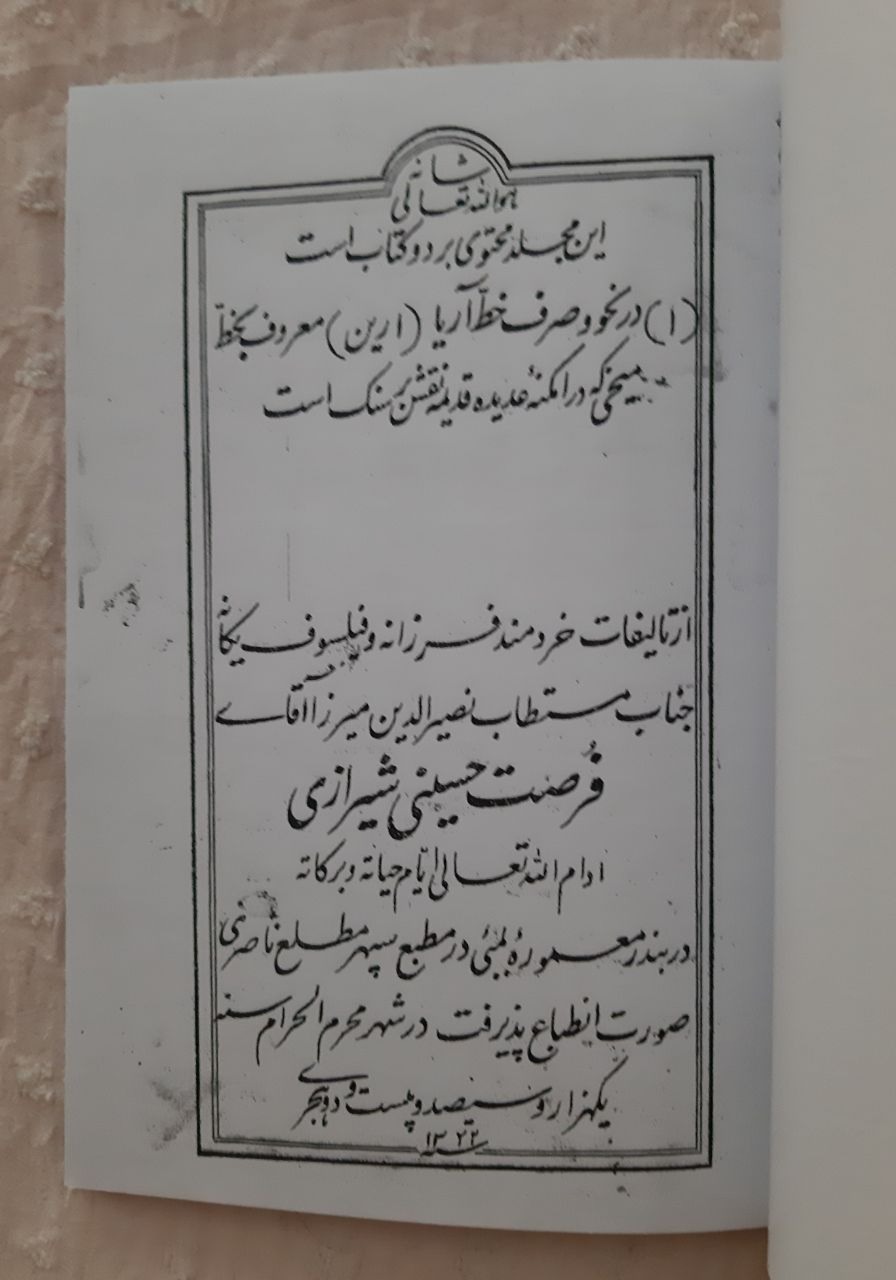 هو الله تعالی شانه
این مجلد محتوی بر دو کتاب است
(۱) در نحو و صرف خطّ آریا (ارین) معروف بخطّ
میخی که در امکنهٔ عدیده قدیمه نقش بر سنک است
از تالیفات خردمند فرزانه و فیلسوف یکانه
جناب مستطاب نصیرالدین میرزا آقای
فُرصت حسینی شیرازی
ادام الله تعالی ایّام حیاته و برکاته
در بندر معمورهٔ بمبئی در مطبع سپهر مطلع ناصری
صورت انطباع پذیرفت در شهر محرم الحرام سنه
یکهزار و سیصد و بیست و دو هجری
سنه ۱۳۲۲